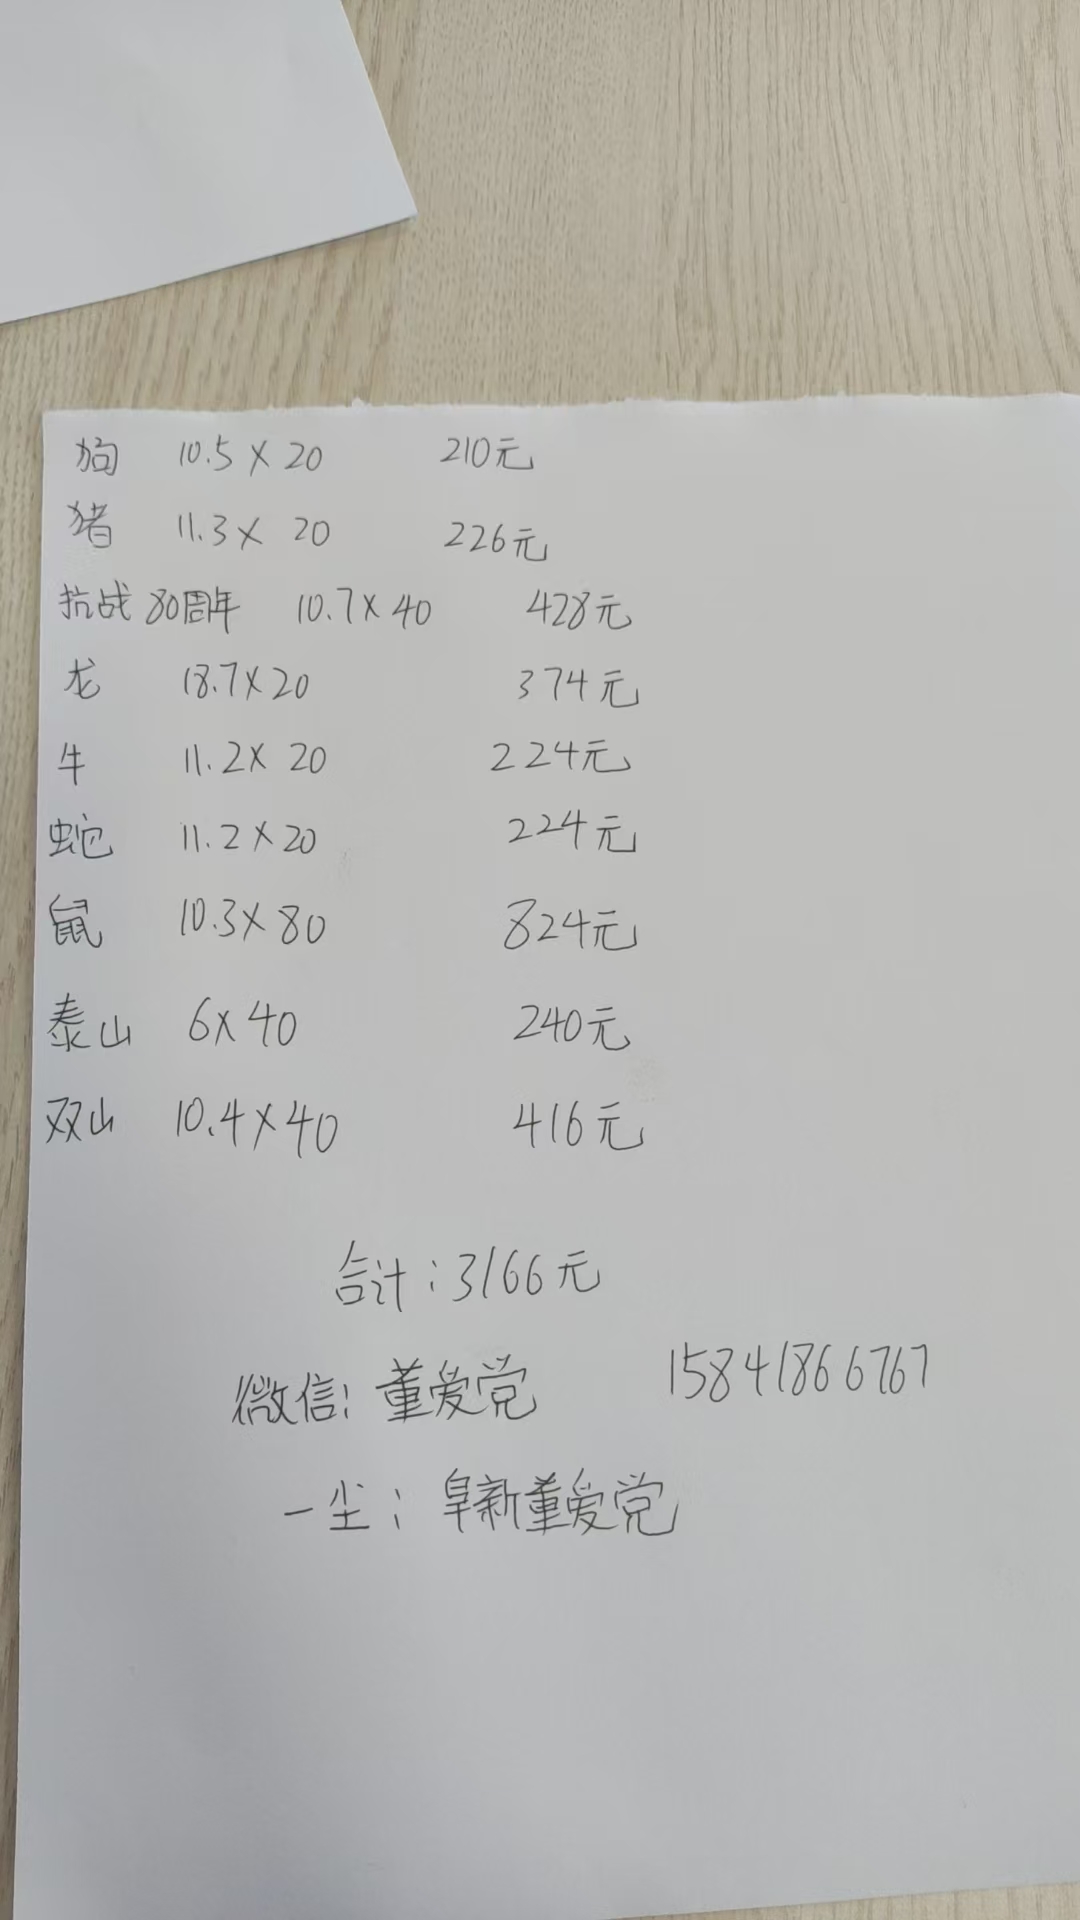 狗 10.5×20 210元
猪 11.3× 20 226元
抗战80周年 10.7×40 428元
龙 18.7×20 374元
牛 11.2× 20 224元
蛇 11.2×20 224元
鼠 10.3×80 824元
泰山 6×40 240元
双山 10.4×40 416元
合计:3166元
微信: 董爱党 15841866767
一尘: 阜新董爱党